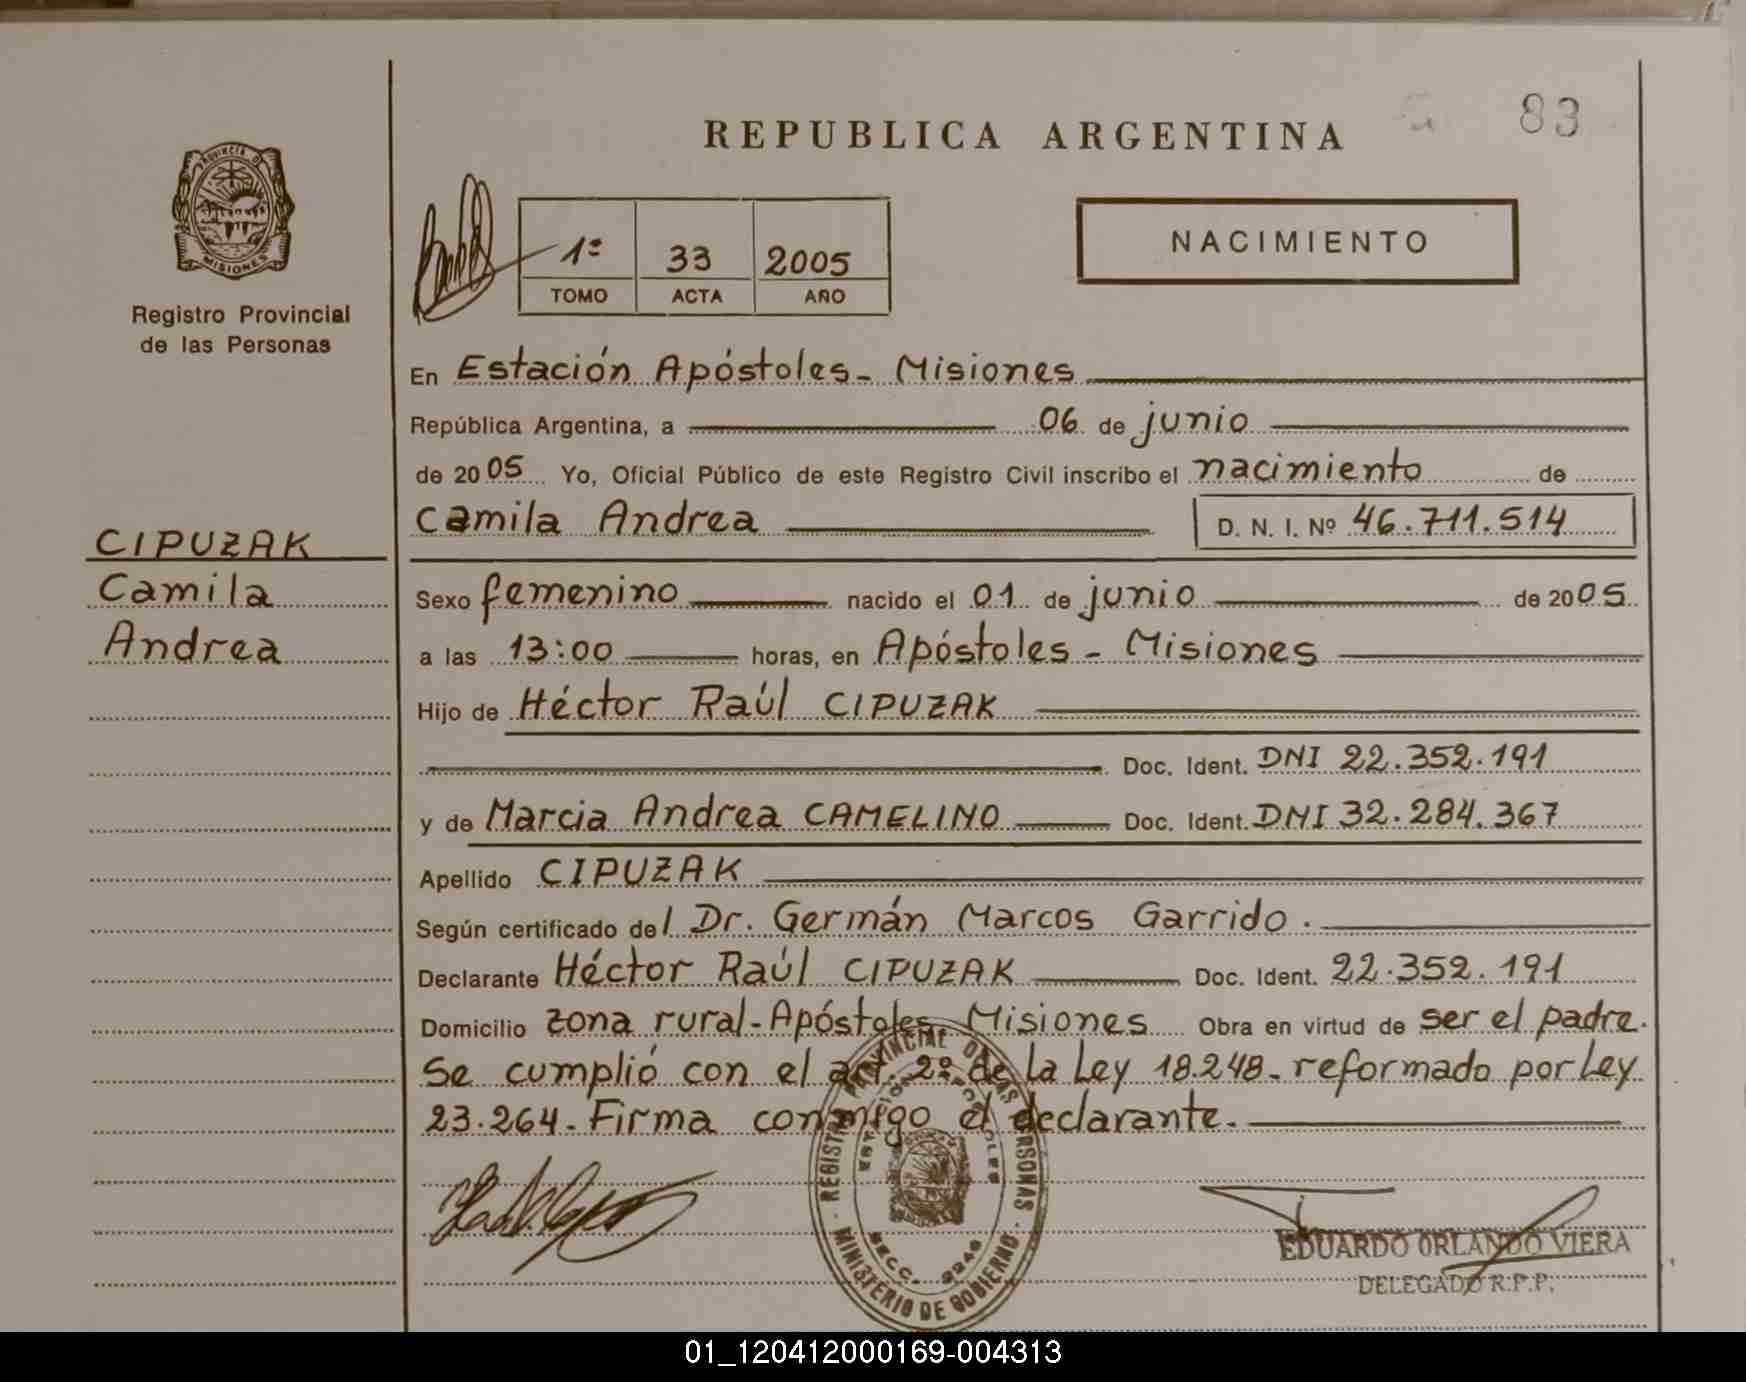 83
REPUBLICA ARGENTINA
PROVINCIA D
MISIONES
Registro Provincial
de las Personas
1º 33 2005
TOMO ACTA AÑO
NACIMIENTO
En Estación Apóstoles - Misiones
República Argentina, a 06 de junio
de 2005 Yo, Oficial Público de este Registro Civil inscribo el nacimiento de
Camila Andrea D. N. I. Nº 46.711.514
CIPUZAK
Camila
Andrea
Sexo femenino nacido el 01 de junio de 2005
a las 13:00 horas, en Apóstoles - Misiones
Hijo de Héctor Raúl CIPUZAK
Doc. Ident. DNI 22.352.191
y de Marcia Andrea CAMELINO Doc. Ident. DNI 32.284.367
Apellido CIPUZAK
Según certificado del Dr. Germán Marcos Garrido.
Declarante Héctor Raúl CIPUZAK Doc. Ident. 22.352.191
Domicilio zona rural - Apóstoles Misiones Obra en virtud de ser el padre.
Se cumplió con el art. 2º de la Ley 18.248 - reformado por Ley
23.264 - Firma conmigo el declarante.
REGISTRO PROVINCIAL DE LAS PERSONAS
ESTACION APOSTOLES
SECC. 2246
MINISTERIO DE GOBIERNO
EDUARDO ORLANDO VIERA
DELEGADO R.P.P.
01_120412000169-004313